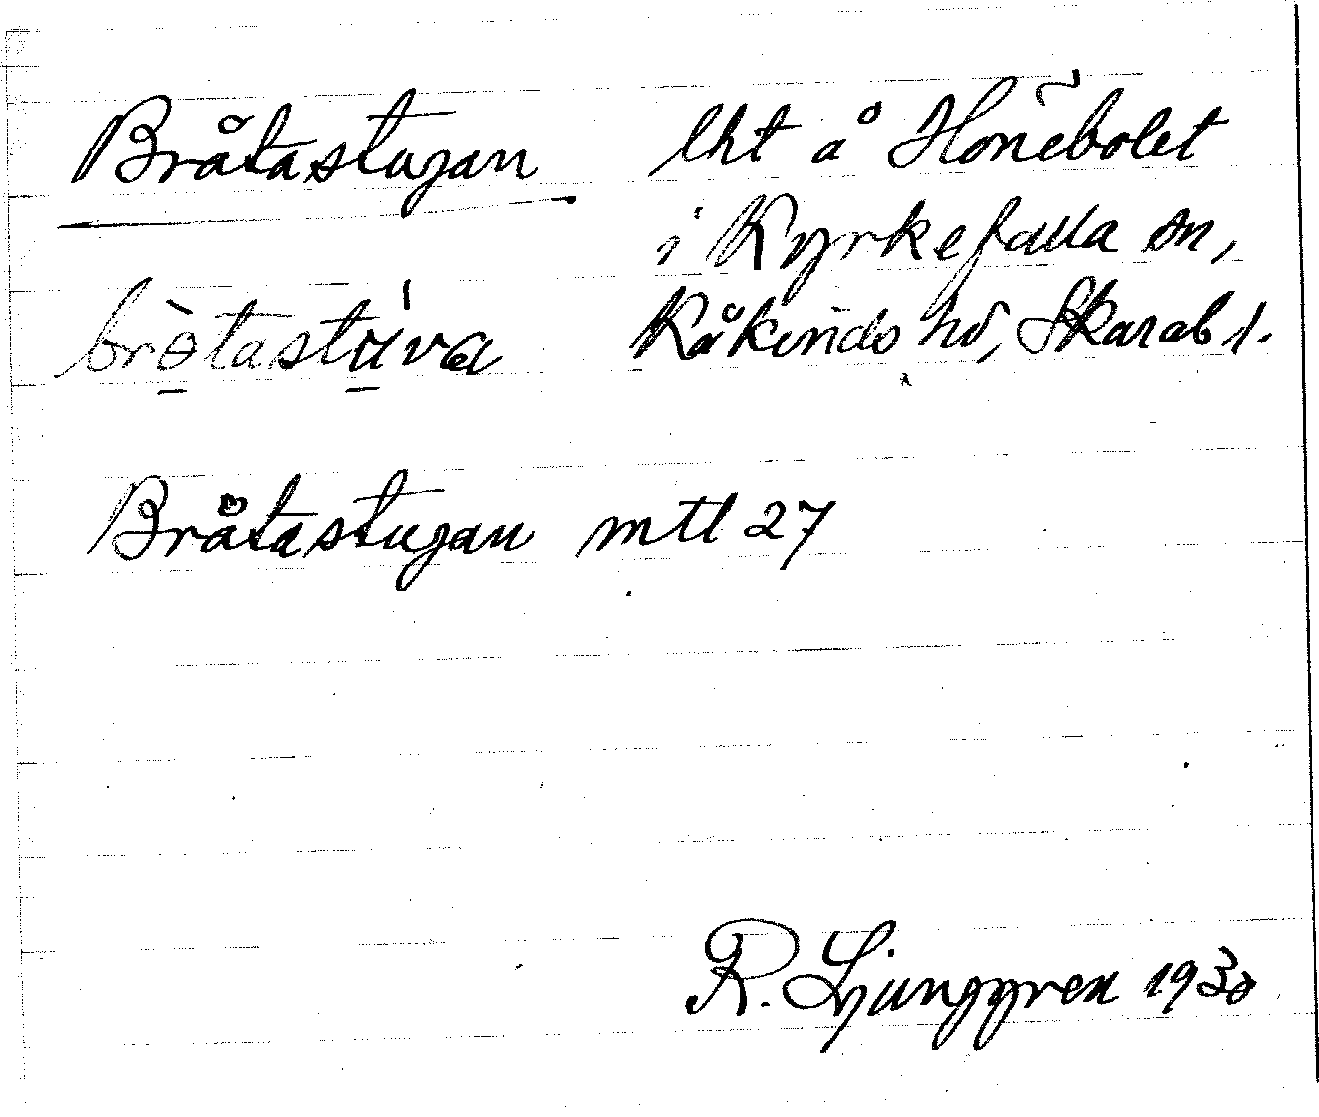 Bråtastugan lht å Hönebolet
i Kyrkefalla sn,
bròtastu̱'va Kåkinds hd, Skarab l.
Bråtastugan mtl 27
R. Ljunggren 1930